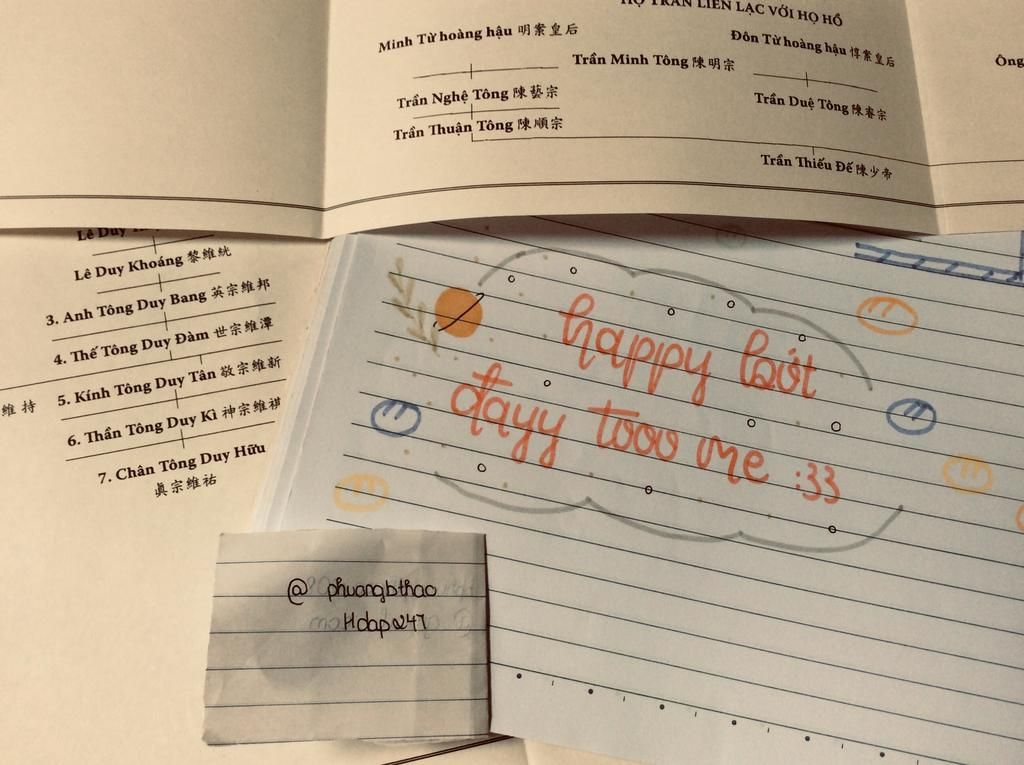 HỌ TRẦN LIÊN LẠC VỚI HỌ HỒ
Minh Từ hoàng hậu 明案皇后
Đôn Từ hoàng hậu 惇案皇后
Trần Minh Tông 陳明宗
Ông
Trần Nghệ Tông 陳藝宗
Trần Duệ Tông 陳睿宗
Trần Thuận Tông 陳順宗
Trần Thiếu Đế 陳少帝
Lê Duy
Lê Duy Khoáng 黎維絖
3. Anh Tông Duy Bang 英宗維邦
4. Thế Tông Duy Đàm 世宗維潭
維持
5. Kính Tông Duy Tân 敬宗維新
6. Thần Tông Duy Kì 神宗維祺
7. Chân Tông Duy Hữu
眞宗維祐
happy bớt
đayy tooo me :33
@ phuongbthao